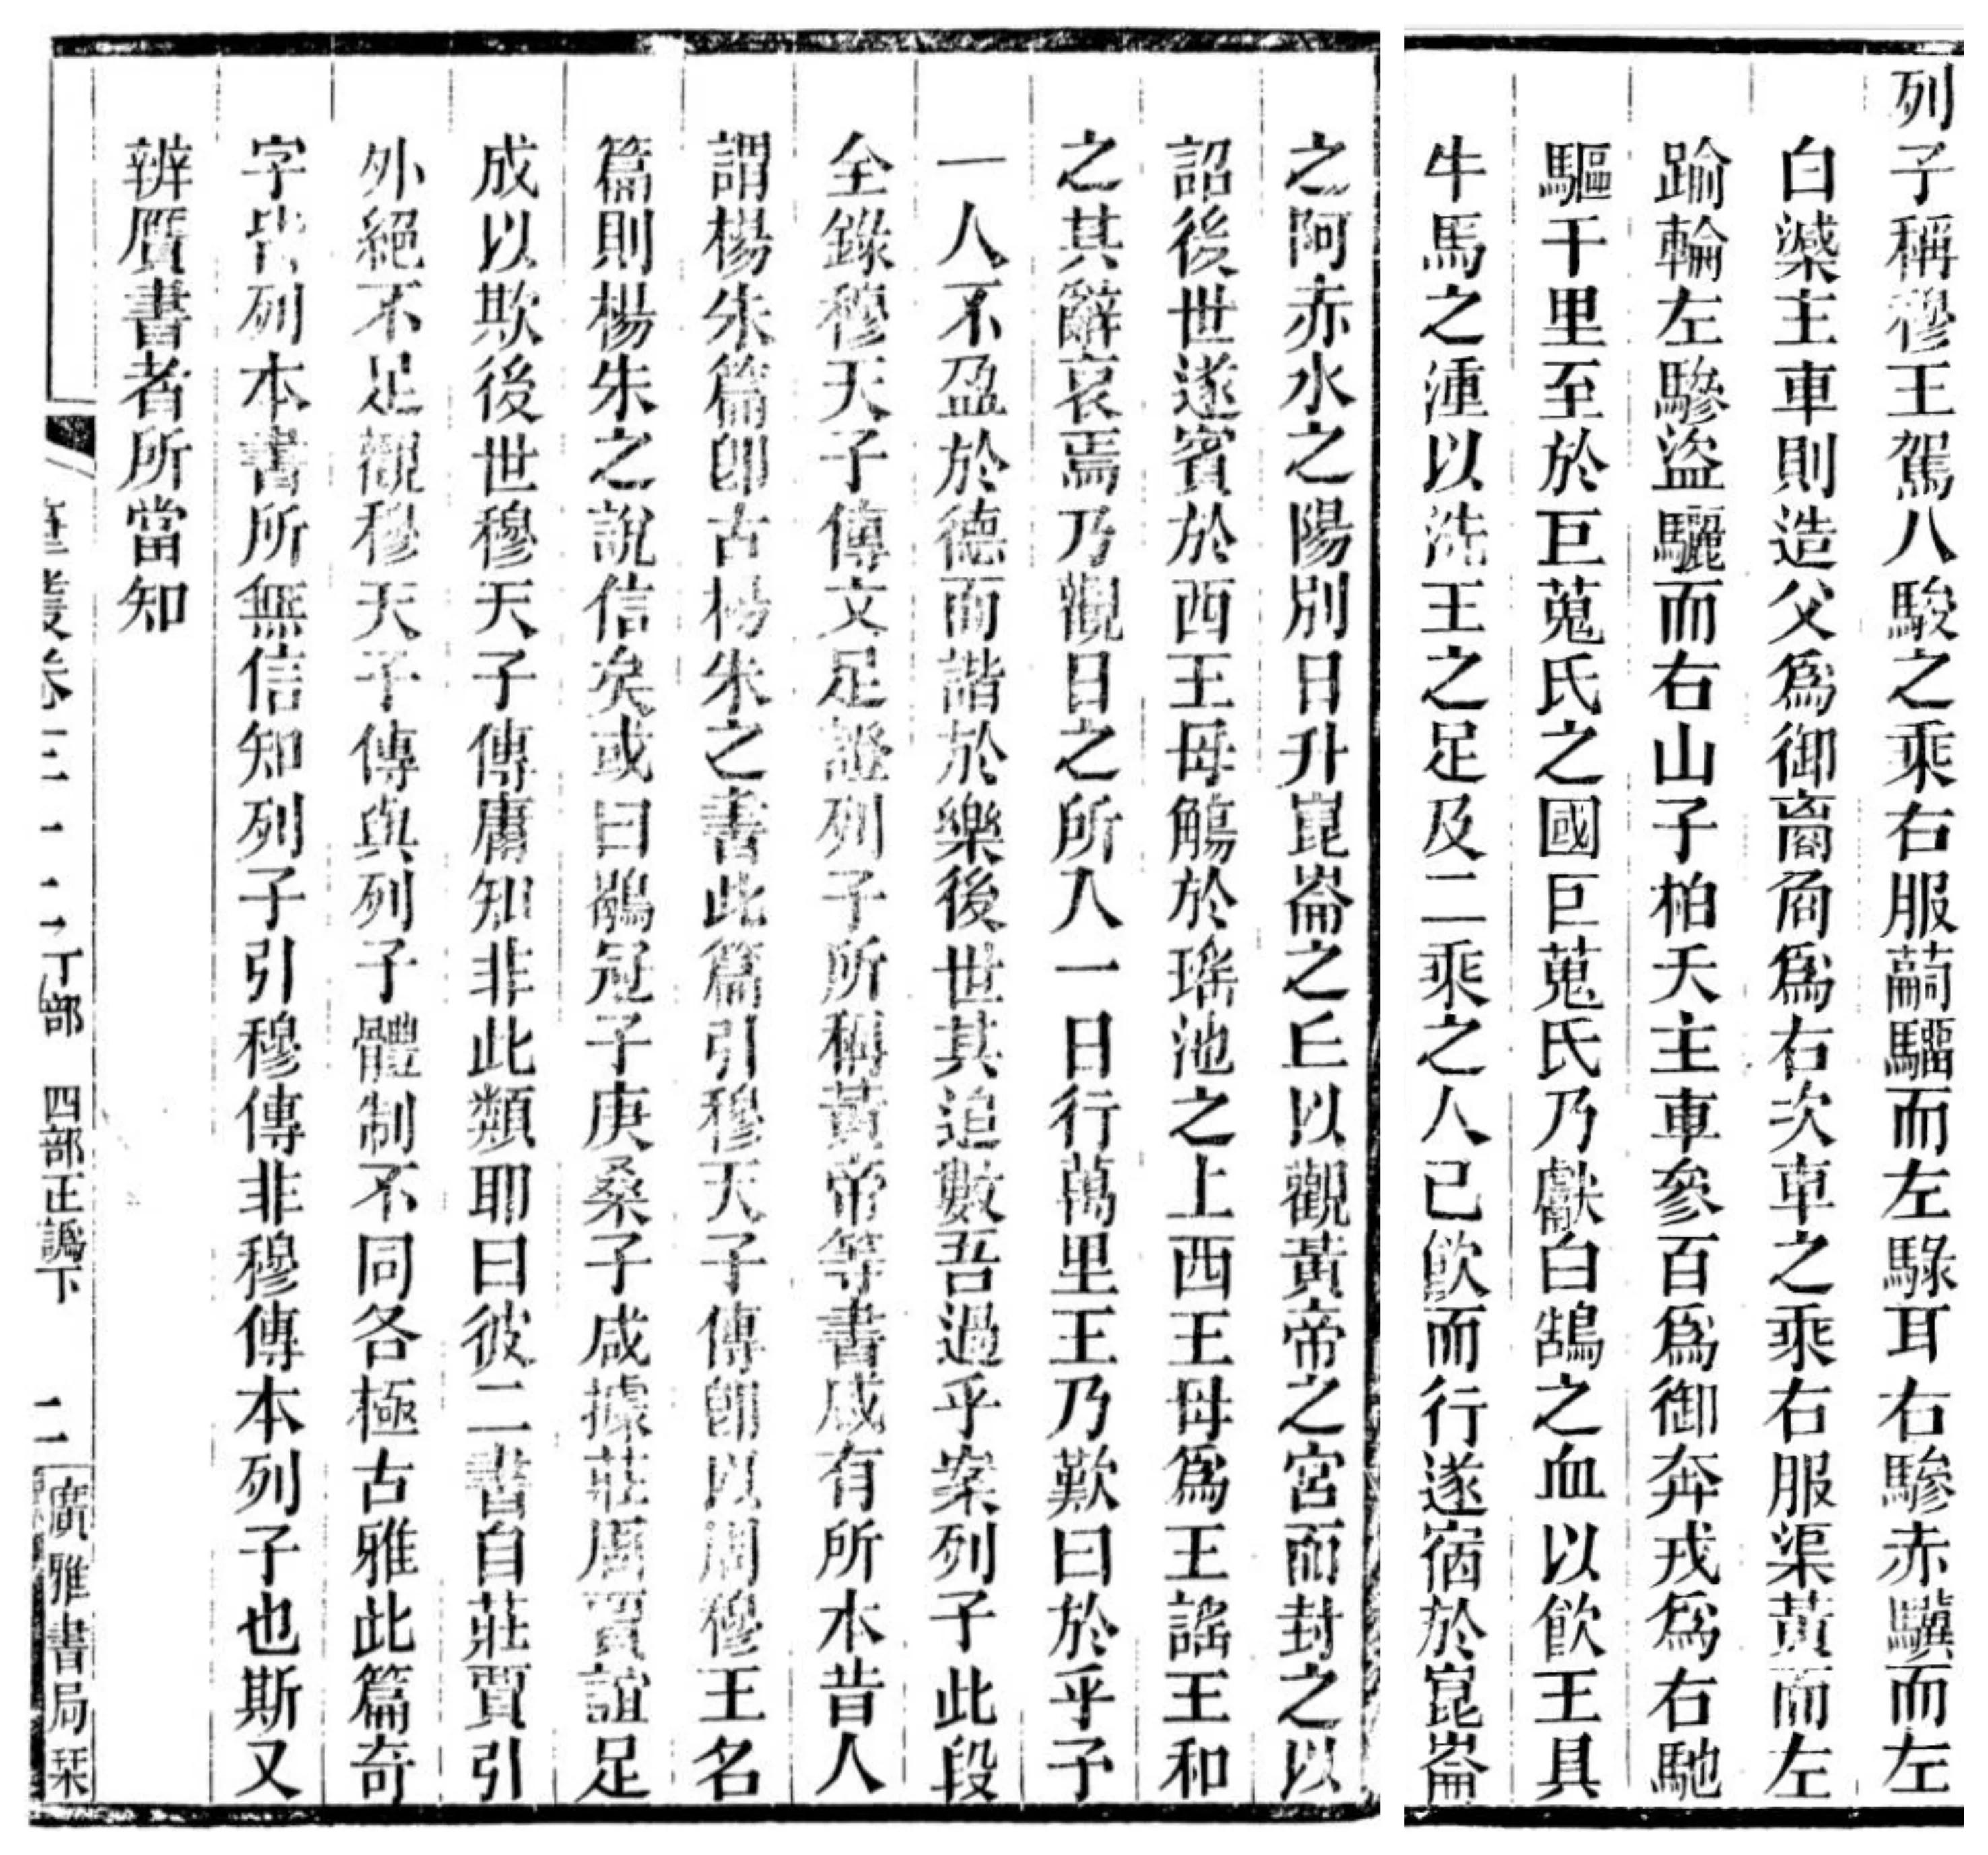 列子稱穆王駕八駿之乘右服䔿騮而左騄耳右驂赤驥而左
白㵐主車則造父爲御𧮫𠹧爲右次車之乘右服渠黃而左
踰輪左驂盜驪而右山子柏夭主車參百爲御奔戎爲右馳
驅千里至於巨蒐氏之國巨蒐氏乃獻白鵠之血以飮王具
牛馬之湩以洗王之足及二乘之人已飮而行遂宿於崑崙
之阿赤水之陽別日升崑崙之丘以觀黃帝之宮而封之以
詔後世遂賓於西王母觴於瑤池之上西王母爲王謠王和
之其辭哀焉乃觀日之所入一日行萬里王乃歎曰於乎予
一人不盈於德而諧於樂後世其追數吾過乎案列子此段
全錄穆天子傳文足證列子所稱黃帝等書咸有所本昔人
謂楊朱篇卽古楊朱之書此篇引穆天子傳卽以周穆王名
篇則楊朱之說信矣或曰鶡冠子庚桑子咸據莊周賈誼足
成以欺後世穆天子傳庸知非此類耶曰彼二書自莊賈引
外絕不足觀穆天子傳與列子體制不同各極古雅此篇奇
字皆列本書所無信知列子引穆傳非穆傳本列子也斯又
辨贋書者所當知
丁部 四部正譌下 二 廣雅書局栞